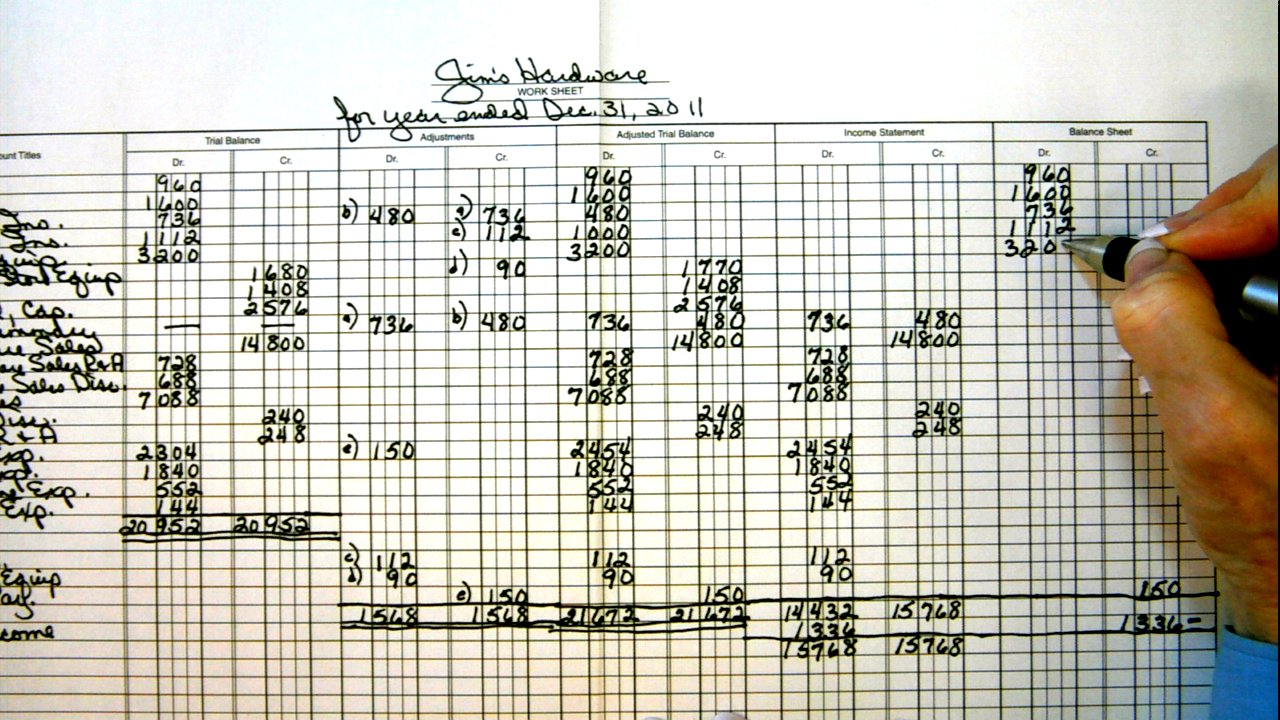 Jim's Hardware
WORK SHEET
for year ended Dec. 31, 2011
Trial Balance Adjustments Adjusted Trial Balance Income Statement Balance Sheet
unt Titles Dr. Cr. Dr. Cr. Dr. Cr. Dr. Cr. Dr. Cr.
960 960 960
1600 1600 1600
Inv. 736 b) 480 a) 736 480 736
Ins. 1112 c) 112 1000 1112
Equip. 3200 3200 320
Store Equip 1680 d) 90 1770
1408 1408
, Cap. 2576 2576
— — a) 736 b) 480 736 480 736 480
Sales 14800 14800 14800
Sales R&A 728 728 728
Sales Disc. 688 688 688
es 7088 7088 7088
Disc. 240 240 240
R & A 248 248 248
Exp. 2304 e) 150 2454 2454
Exp. 1840 1840 1840
Exp. 552 552 552
Exp. 144 144 144
20952 20952
c) 112 112 112
Equip d) 90 90 90
ay. e) 150 150 150
1568 1568 21672 21672 14432 15768
come 1336 1336-
15768 15768